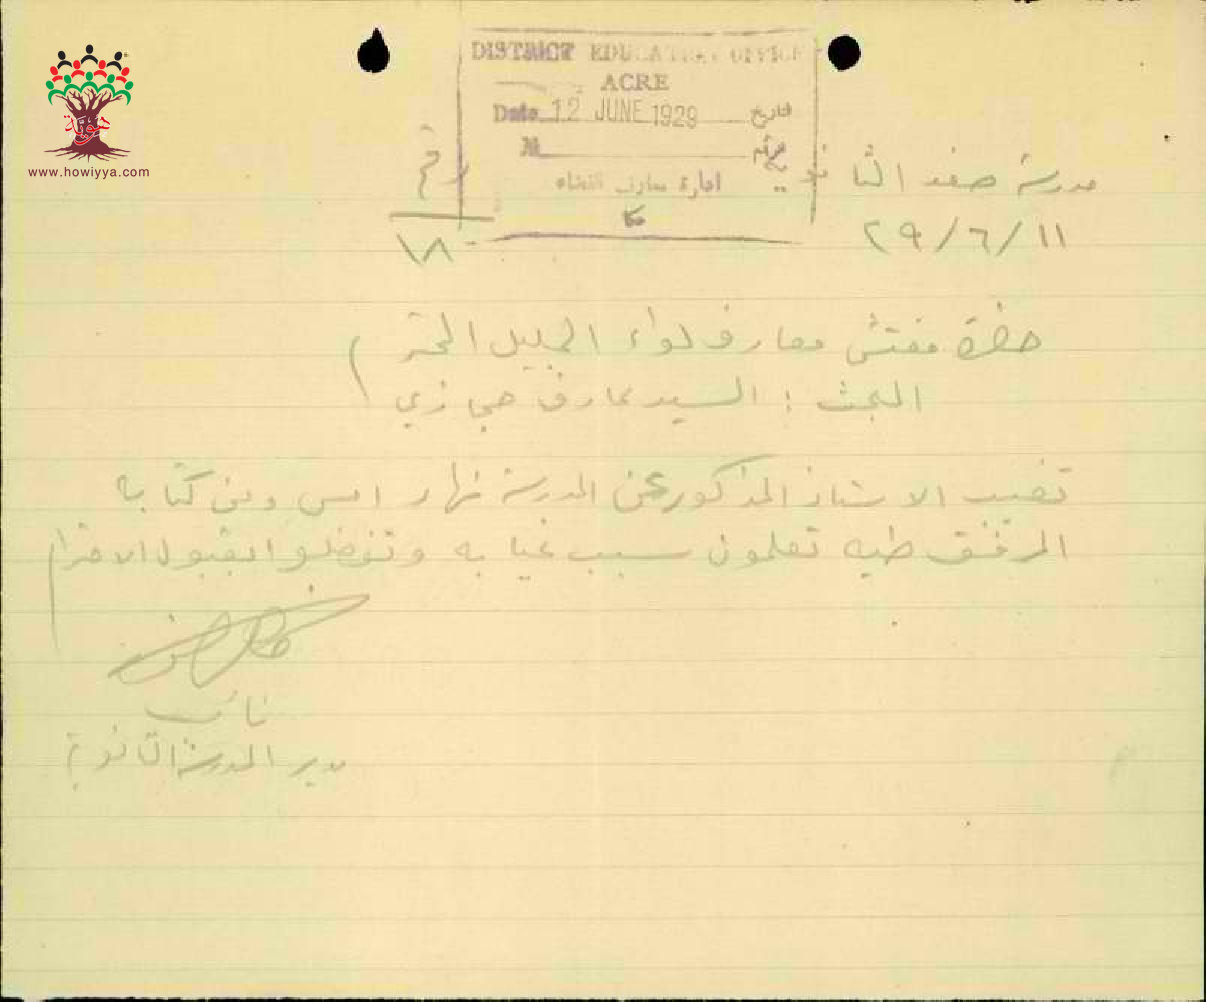 DISTRICT EDUCATION OFFICE
ACRE
Date 12 JUNE 1929 تاريخ
№ رقم
ادارة معارف القضاء
عكا
هوية
www.howiyya.com
مدرسة صفد الثانوية
رقم
١١/٦/٢٩
١٨
حضرة مفتش معارف لواء الجليل المحترم
البحث : السيد عارف حجازي
تغيب الاستاذ المذكور عن المدرسة نهار امس ومن كتابه
المرفق طيه تعلمون سبب غيابه وتفضلوا بقبول الاحترام
نائب
مدير المدرسة الثانوية